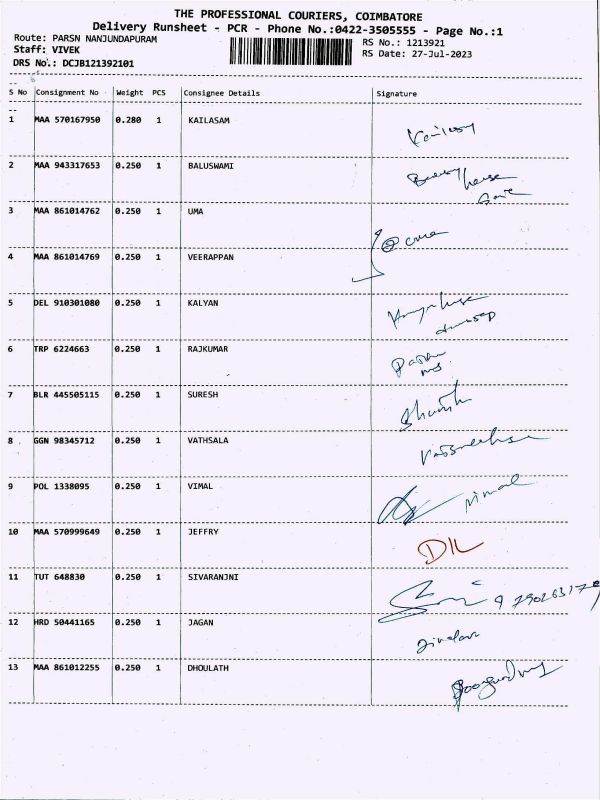 THE PROFESSIONAL COURIERS, COIMBATORE
Delivery Runsheet - PCR - Phone No.:0422-3505555 - Page No.:1
Route: PARSN NANJUNDAPURAM
RS No.: 1213921
Staff: VIVEK
RS Date: 27-Jul-2023
DRS No.: DCJB121392101
S No Consignment No Weight PCS Consignee Details Signature
1 MAA 570167950 0.280 1 KAILASAM
2 MAA 943317653 0.250 1 BALUSWAMI
3 MAA 861014762 0.250 1 UMA
4 MAA 861014769 0.250 1 VEERAPPAN
5 DEL 910301080 0.250 1 KALYAN
6 TRP 6224663 0.250 1 RAJKUMAR
7 BLR 445505115 0.250 1 SURESH
8 GGN 98345712 0.250 1 VATHSALA
9 POL 1338095 0.250 1 VIMAL
10 MAA 570999649 0.250 1 JEFFRY
11 TUT 648830 0.250 1 SIVARANJNI
12 HRD 50441165 0.250 1 JAGAN
13 MAA 861012255 0.250 1 DHOULATH